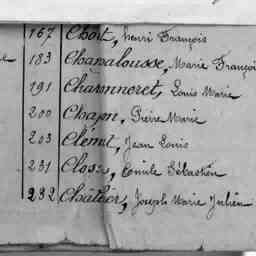 167 Chott, Henri François
183 Chamalousse, Marie Françoi
191 Charmneret, Louis Marie
200 Chapn, Pierre Marie
203 Clémt, Jean Louis
231 Closs, Emile Sébastien
232 Châtier, Joseph Marie Julien